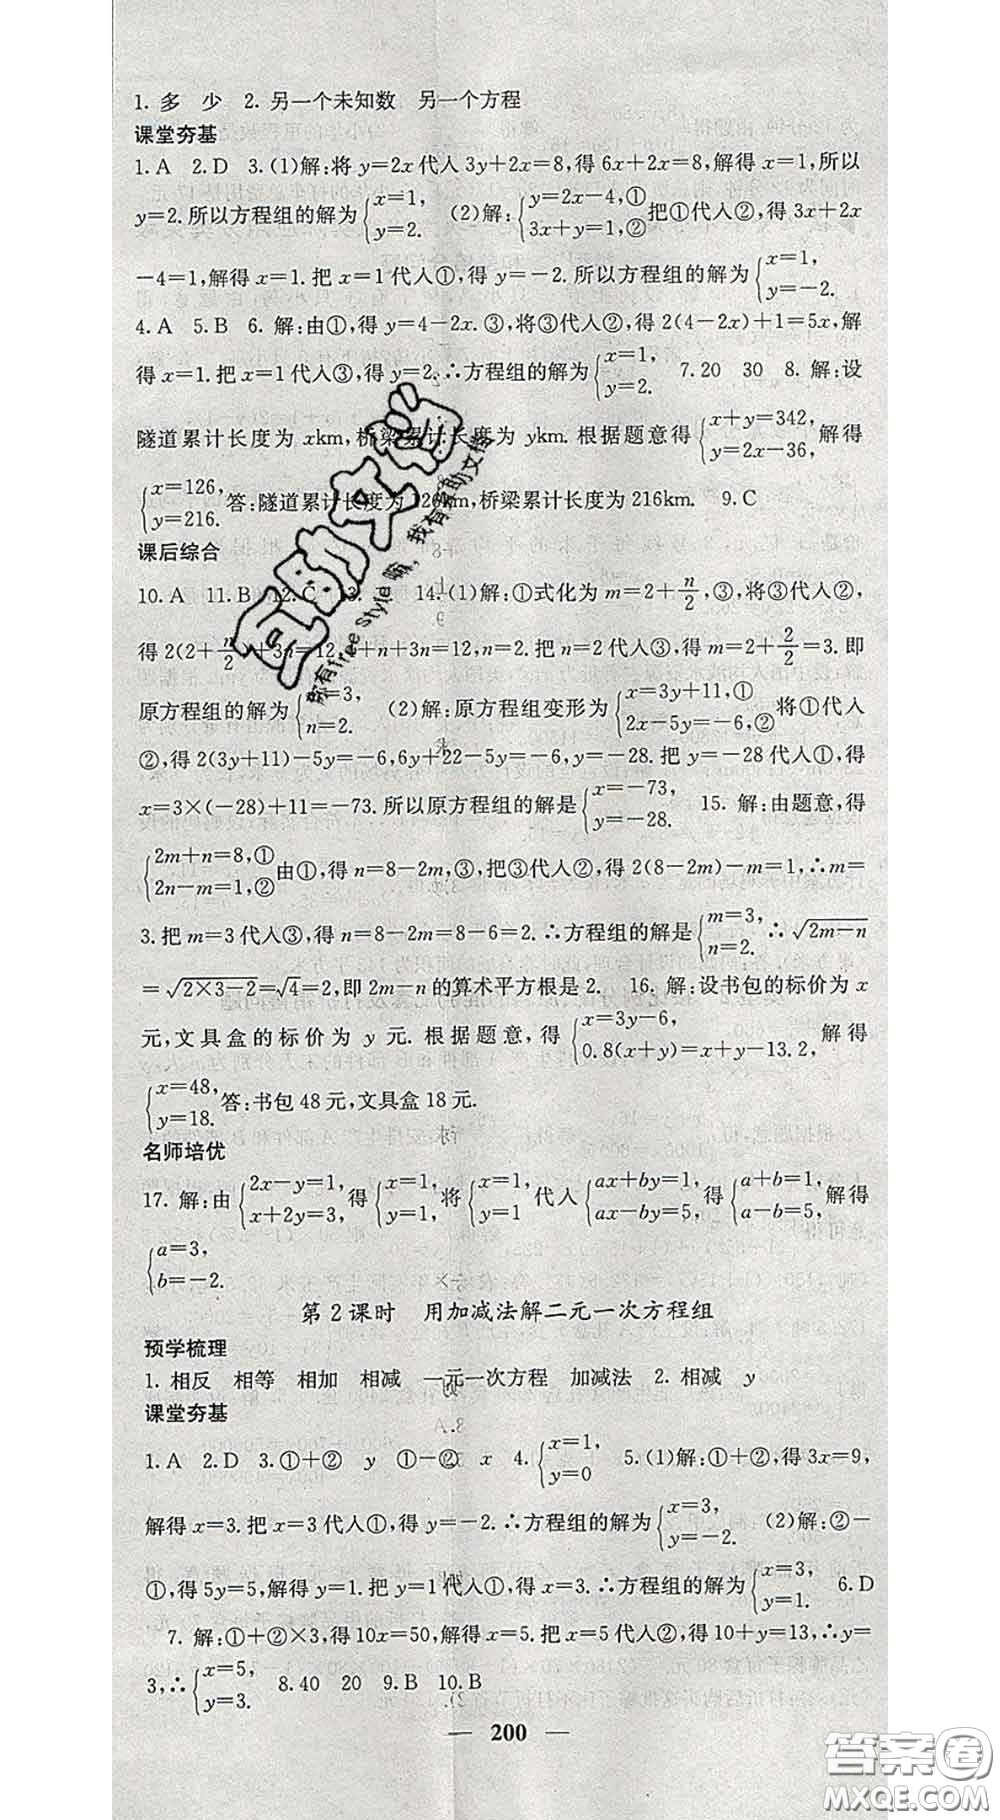 1. 多 少 2. 另一个未知数 另一个方程
课堂夯基
1. A 2. D 3. (1)解:将 y=2x 代入 3y+2x=8,得 6x+2x=8,解得 x=1,所以
y=2. 所以方程组的解为{x=1, y=2. (2)解:{y=2x-4,① 3x+y=1,② 把①代入②,得 3x+2x
-4=1,解得 x=1. 把 x=1 代入①,得 y=-2. 所以方程组的解为{x=1, y=-2.
4. A 5. B 6. 解:由①,得 y=4-2x. ③,将③代入②,得 2(4-2x)+1=5x,解
得 x=1. 把 x=1 代入③,得 y=2. ∴方程组的解为{x=1, y=2. 7. 20 30 8. 解:设
隧道累计长度为 xkm,桥梁累计长度为 ykm. 根据题意得{x+y=342, y=2x-36, 解得
{x=126, y=216. 答:隧道累计长度为126km,桥梁累计长度为 216km. 9. C
课后综合
10. A 11. B 12. C 13. 14. (1)解:①式化为 m=2+n/2,③,将③代入②,
得 2(2+n/2)+3n=12,4+n+3n=12,n=2. 把 n=2 代入③,得 m=2+2/2=3. 即
原方程组的解为{m=3, n=2. (2)解:原方程组变形为{x=3y+11,① 2x-5y=-6,② 将①代入
②,得 2(3y+11)-5y=-6,6y+22-5y=-6,y=-28. 把 y=-28 代入①,得
x=3×(-28)+11=-73. 所以原方程组的解是{x=-73, y=-28. 15. 解:由题意,得
{2m+n=8,① 2n-m=1,② 由①,得 n=8-2m,③,把③代入②,得 2(8-2m)-m=1,∴m=
3. 把 m=3 代入③,得 n=8-2m=8-6=2. ∴方程组的解是{m=3, n=2. ∴√(2m-n)
=√(2×3-2)=√4=2,即 2m-n 的算术平方根是 2. 16. 解:设书包的标价为 x
元,文具盒的标价为 y 元. 根据题意,得{x=3y-6, 0.8(x+y)=x+y-13.2, 解得
{x=48, y=18. 答:书包 48 元,文具盒 18 元.
名师培优
17. 解:由{2x-y=1, x+2y=3, 得{x=1, y=1, 将{x=1, y=1 代入{ax+by=1, ax-by=5, 得{a+b=1, a-b=5, 解得
{a=3, b=-2.
第 2 课时 用加减法解二元一次方程组
预学梳理
1. 相反 相等 相加 相减 一元一次方程 加减法 2. 相减 y
课堂夯基
1. A 2. D 3. ①+② y ①-② x 4. {x=1, y=0 5. (1)解:①+②,得 3x=9,
解得 x=3. 把 x=3 代入①,得 y=-2. ∴方程组的解为{x=3, y=-2. (2)解:②-
①,得 5y=5,解得 y=1. 把 y=1 代入①,得 x=3. ∴方程组的解为{x=3, y=1. 6. D
7. 解:①+②×3,得 10x=50,解得 x=5. 把 x=5 代入②,得 10+y=13,∴y=
3,∴{x=5, y=3. 8. 40 20 9. B 10. B
— 200 —
互助文档
你有free style嘛,我有互助文档
答案圈
MXQE.COM